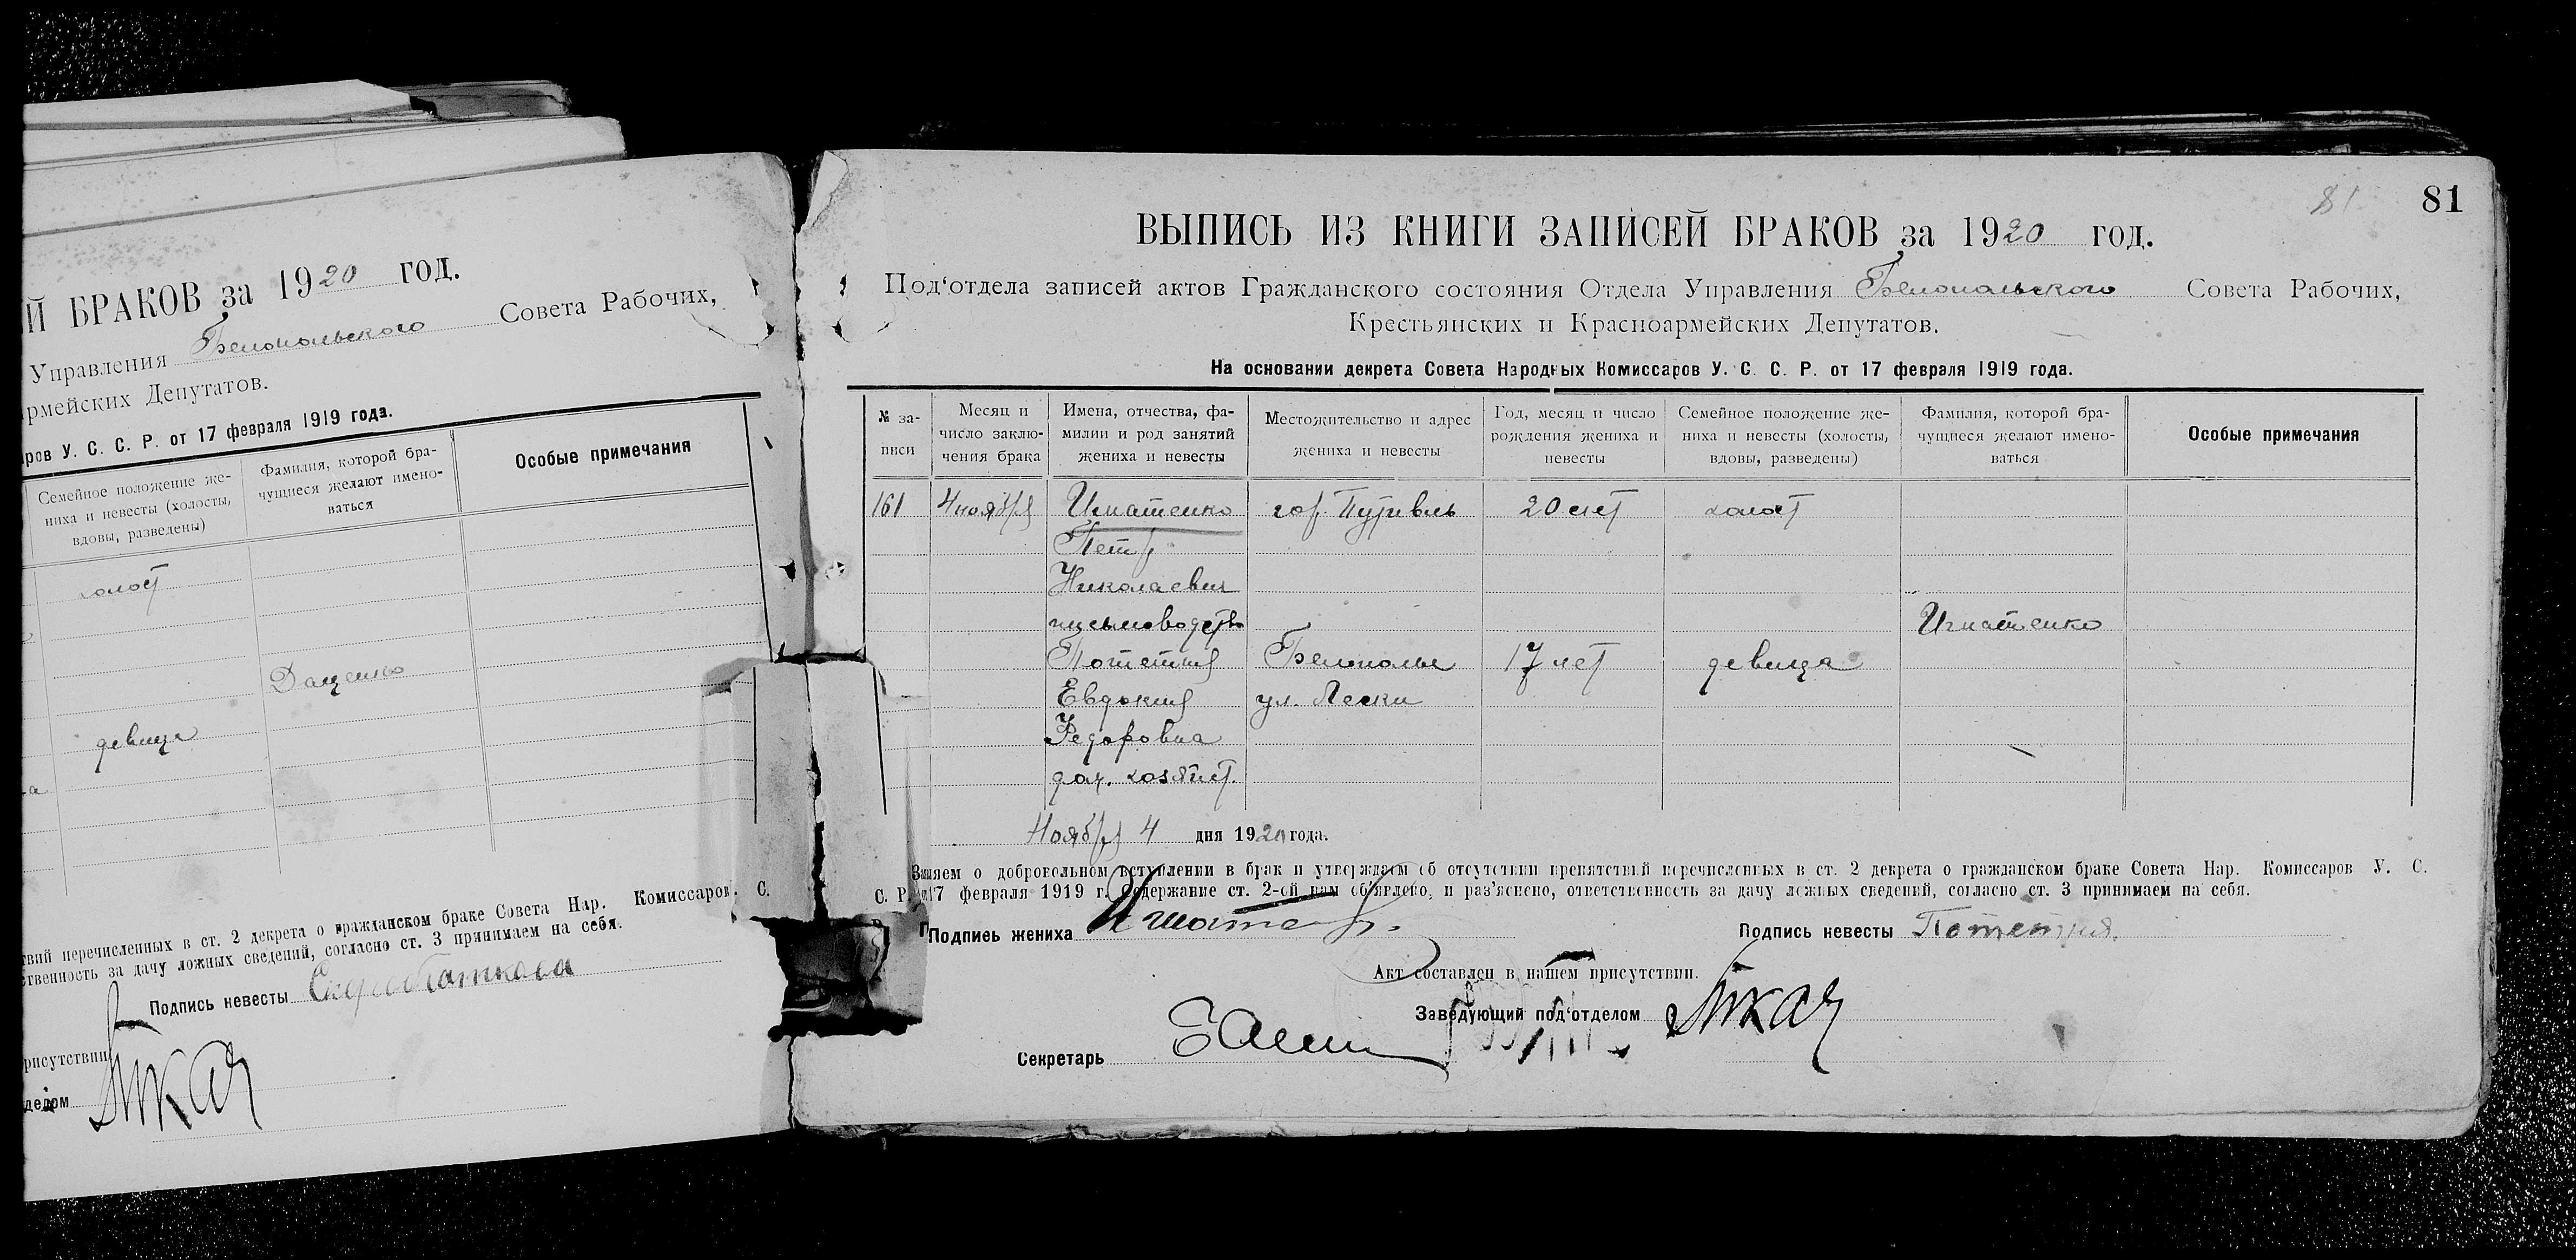 Й БРАКОВ за 1920 год.
Управления Белопольского Совета Рабочих,
армейских Депутатов.
ров У. С. С. Р. от 17 февраля 1919 года.
Семейное положение же-
ниха и невесты (холосты,
вдовы, разведены)
Фамилия, которой бра-
чущиеся желают имено-
ваться
Особые примечания
холост
Даценко
девица
твий перечисленных в ст. 2 декрета о гражданском браке Совета Нар. Комиссаров. С.
ственность за дачу ложных сведений, согласно ст. 3 принимаем на себя.
Подпись невесты
рисутствии
делом Ткач
81 81
ВЫПИСЬ ИЗ КНИГИ ЗАПИСЕЙ БРАКОВ за 1920 год.
Под'отдела записей актов Гражданского состояния Отдела Управления Белопольского Совета Рабочих,
Крестьянских и Красноармейских Депутатов.
На основании декрета Совета Народных Комиссаров У. С. С. Р. от 17 февраля 1919 года.
№ за-
писи
Месяц и
число заклю-
чения брака
Имена, отчества, фа-
милии и род занятий
жениха и невесты
Местожительство и адрес
жениха и невесты
Год, месяц и число
рождения жениха и
невесты
Семейное положение же-
ниха и невесты (холосты,
вдовы, разведены)
Фамилия, которой бра-
чущиеся желают имено-
ваться
Особые примечания
161 4 ноября Игнатенко гор. Путивль 20 лет холост
Петр
Николаевич
письмоводств Игнатенко
Потетня Белополье 17 лет девица
Евдокия ул. Пески
Федоровна
дом. хозяйст.
Ноября 4 дня 1920 года.
Заявляем о добровольном вступлении в брак и утверждаем об отсутствии препятствий перечисленных в ст. 2 декрета о гражданском браке Совета Нар. Комиссаров У. С.
С. Р. 17 февраля 1919 г. Содержание ст. 2-ой нам об'явлено, и раз'яснено, ответственность за дачу ложных сведений, согласно ст. 3 принимаем на себя.
Подпись жениха Подпись невесты Потетня.
Акт составлен в нашем присутствии.
Заведующий под'отделом Ткач
Секретарь